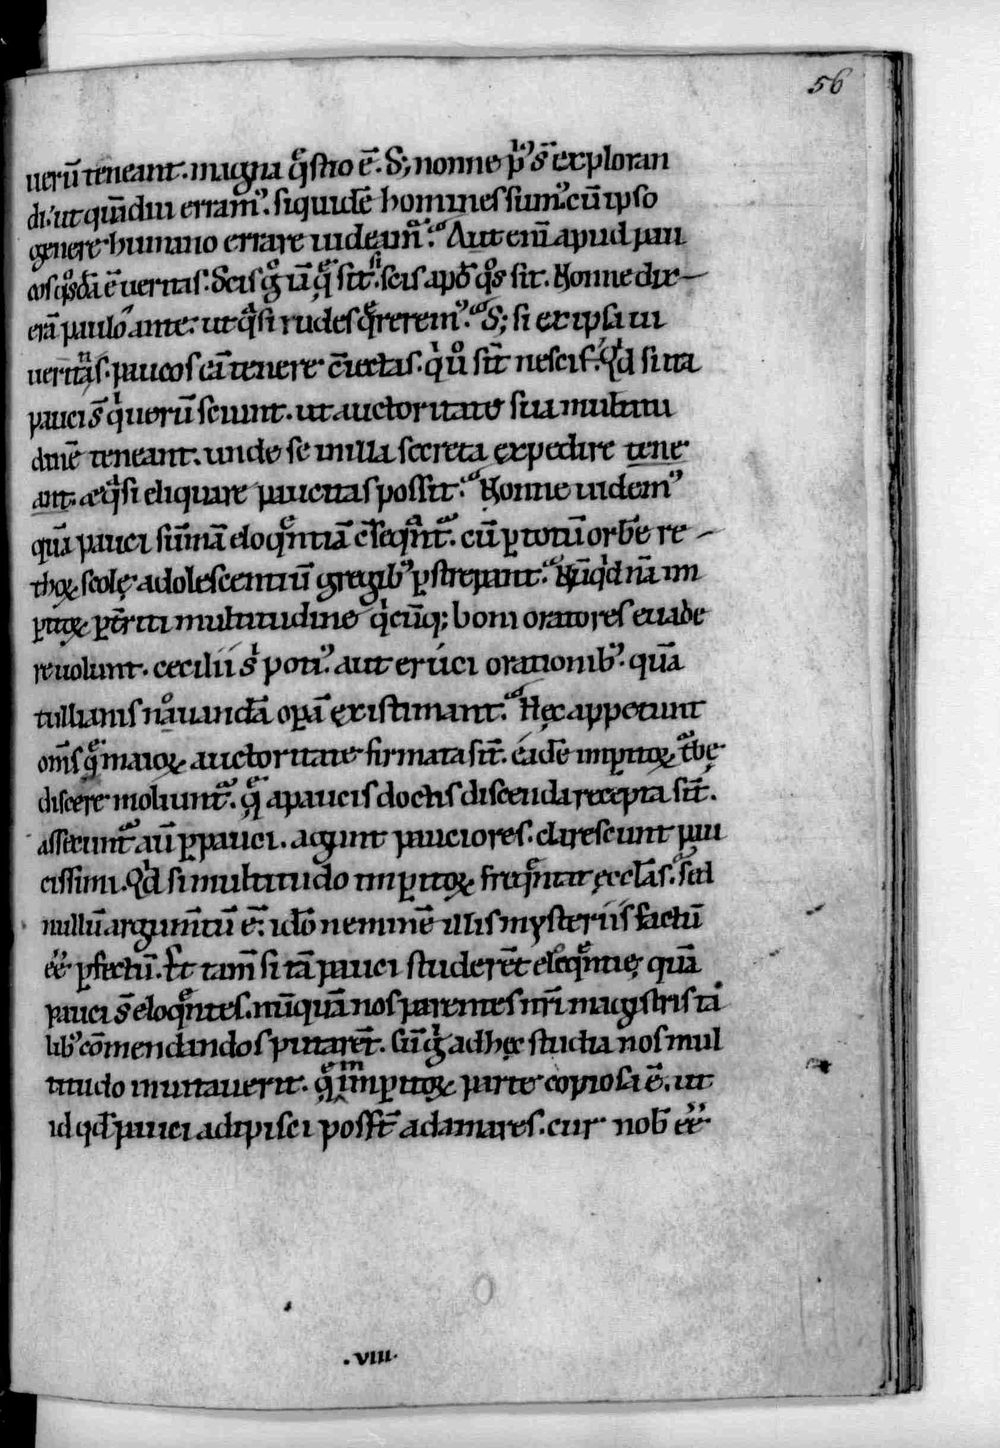 56
uerū teneant. magna q̄stio ē. S; nonne pͥꝰ s̄ exploran
di. ut quādiu erramꝰ. siquidē homines sumꝰ. cū ipso
genere humano errare uideam̄r. Aut enī apud pau
cos qͦsdā ē ueritas. Scis gͦ iā q̄ sit. si scis apd̄ qͦs sit. Nonne dixe
rā paulo ante. ut qͣsi rudes q̄reremꝰ. S; si ex ipsa ui
ueritatis. paucos eā tenere c̄iectas. qͥ uͦ sīt nescis. Qͥd si ita
pauci s̄ qͥ uerū sciunt. ut auctoritate sua multitu
dinē teneant. unde se in illa secreta expedire tene
ant. æ qͣsi eliquare paucitas possit. Nonne uidemꝰ
quā pauci sūmā eloq̄ntiā c̄seqͣnt᷑. cū ꝑ totū orbē re
thoꝝ scolę adolescentiū gregibꝰ ꝑstrepant. Nūqͥd nā im
ꝑitoꝝ ꝑt̄riti multitudine qͥcūq; boni oratores euade
re uolunt. cecilii s̄ potiꝰ aut erúci orationibꝰ. quā
tullianis nauandā oꝑā existimant. Hęc appetunt
om̄s q̄ maioꝝ auctoritate firmata sīt. eadē imꝑitoꝝ tͥbę
discere moliunt᷑. q̄ a paucis doctis discenda recepta sīt.
assecunt᷑ aū ꝑpauci. agunt pauciores. clarescunt pau
cissimi. Qͥd si multitudo imꝑitoꝝ freq̄ntat ęccl̄as. sed
nullū argum̄tū ē. ido nemine illis mysteriis factū
eē ꝑfectū. Et tam̄ si tā pauci studerēt eloq̄ntię quā
pauci s̄ eloq̄ntes. nūquā nos parentes nr̄i magistris ta
libꝰ cōmendandos putarēt. Cū gͦ ad hęc studia nos mul
titudo inuitauerit. q̄ imꝑitoꝝ parte copiosa ē. ut
id qd̄ pauci adipisci possēt adamares. cur nob̄ eē
.VIII.